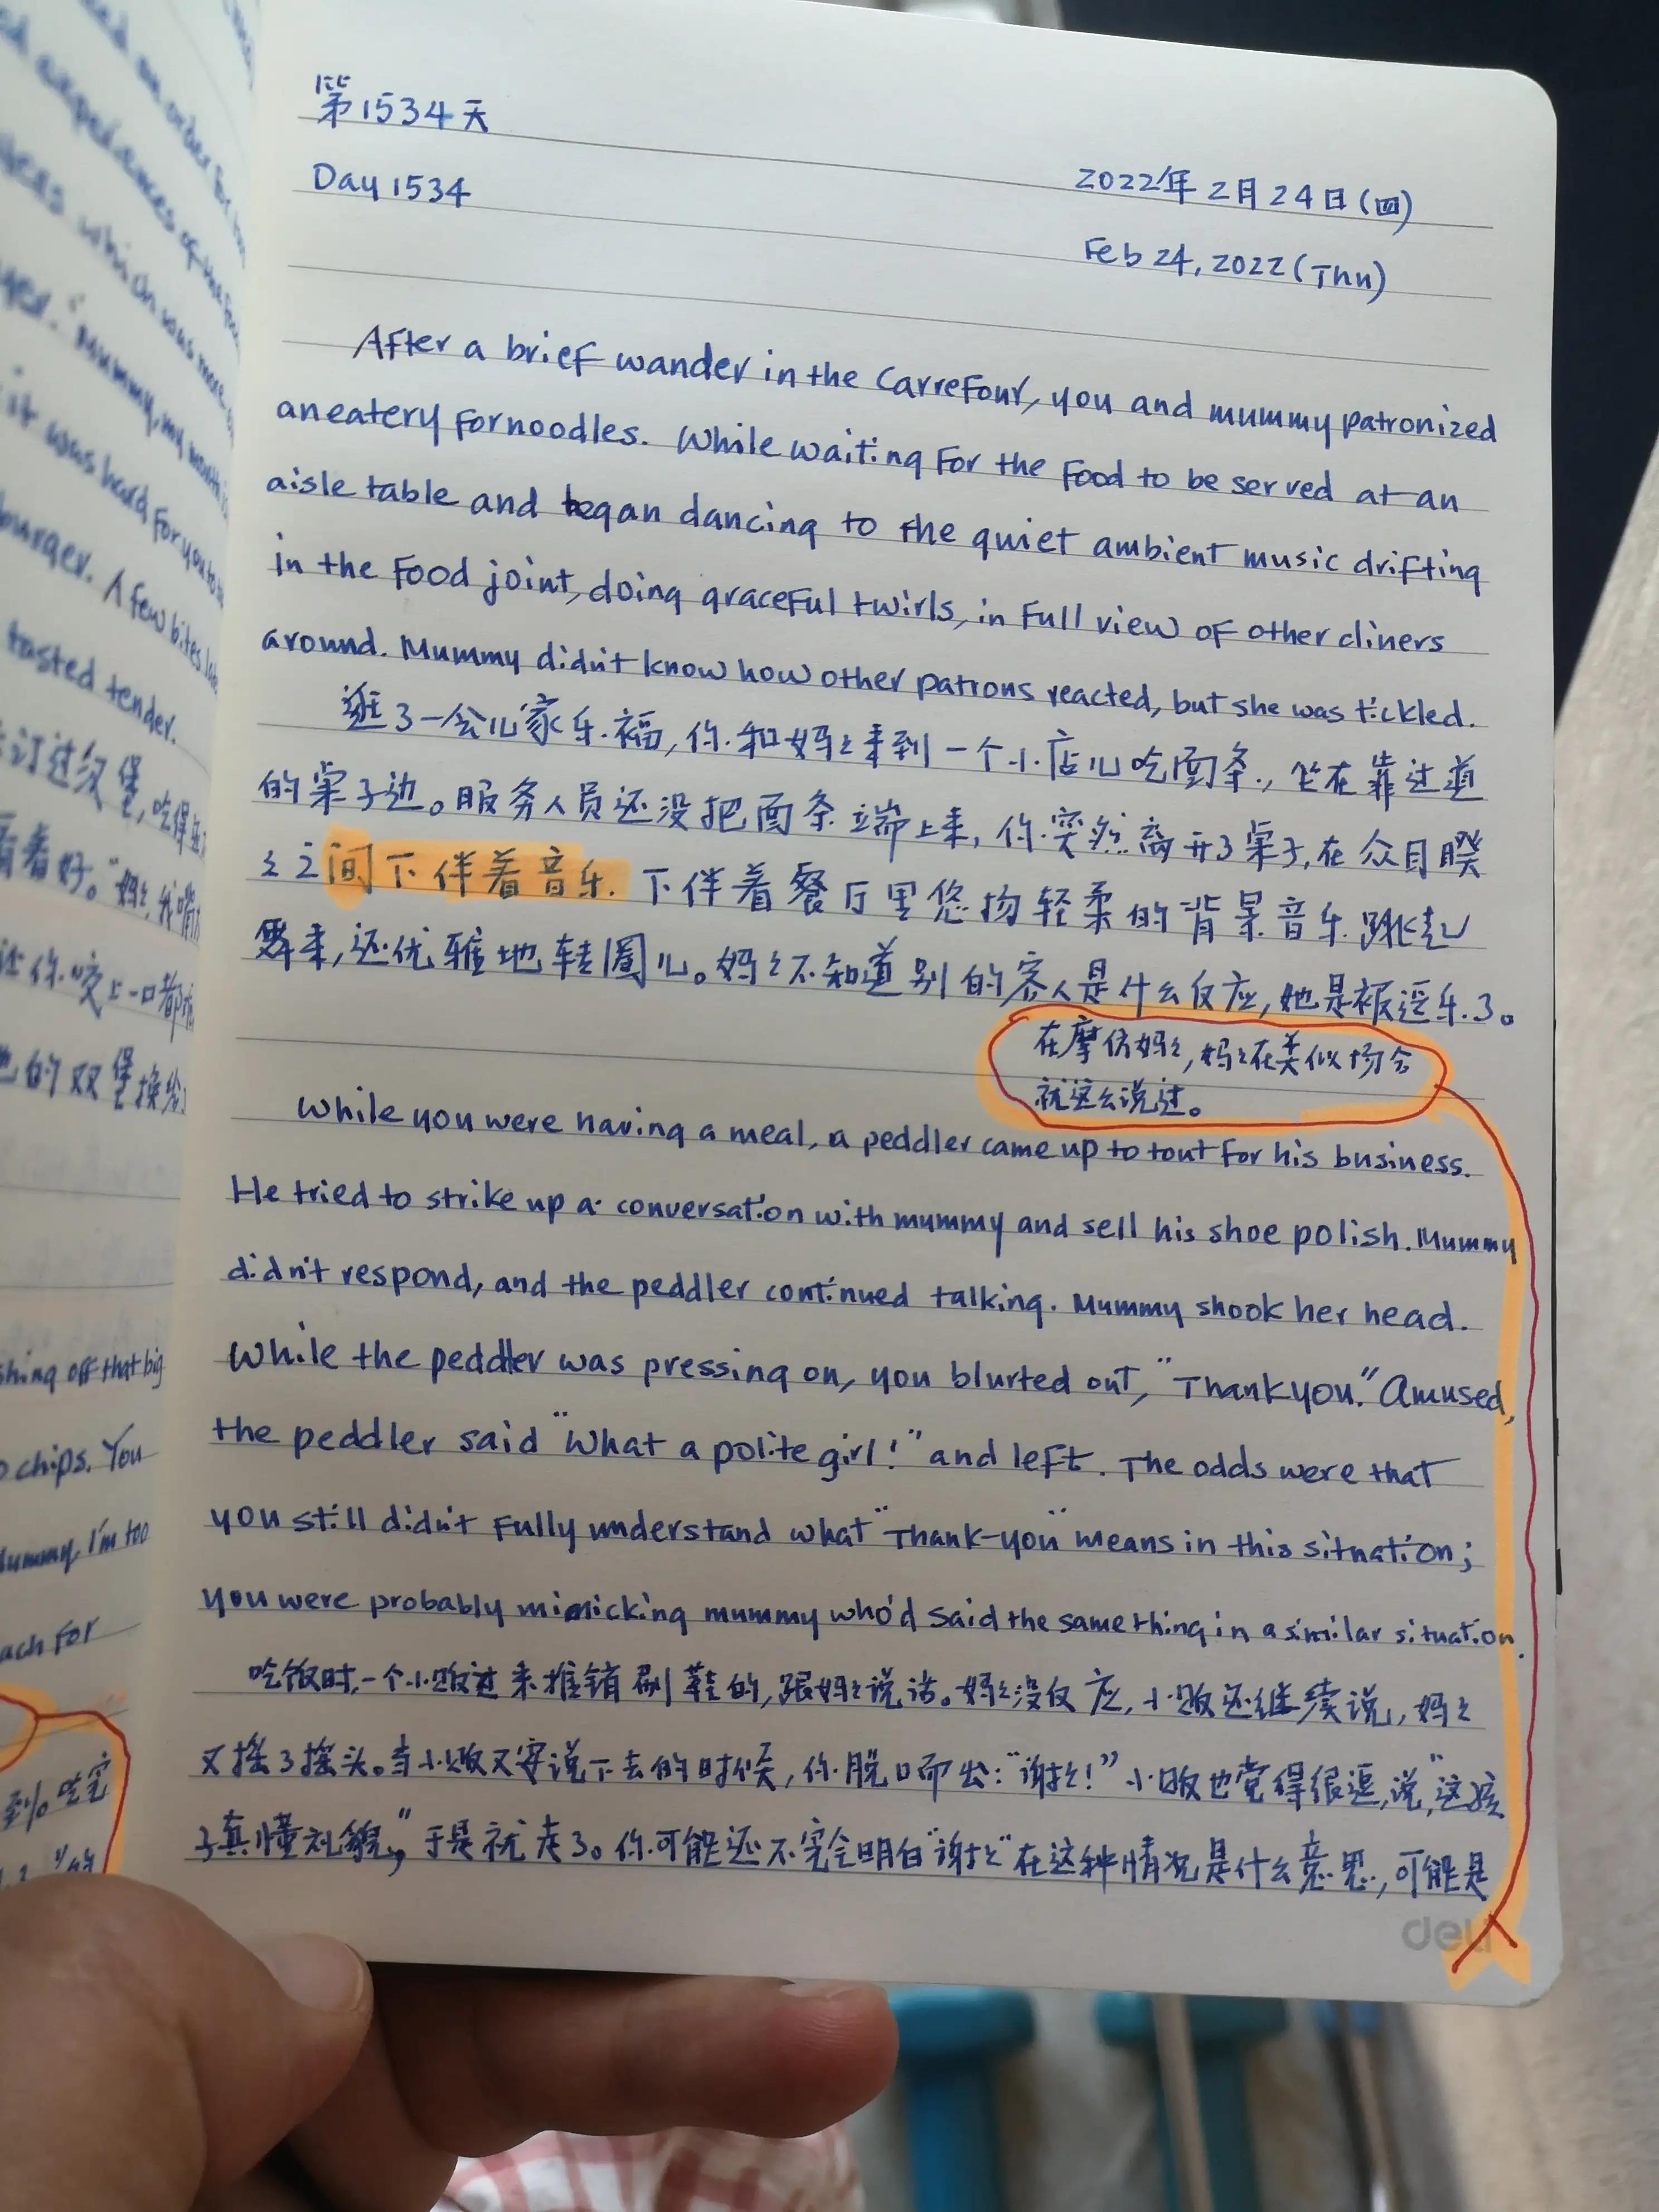 第1534天
Day 1534
2022年2月24日(四)
Feb 24, 2022 (Thu)
After a brief wander in the Carrefour, you and mummy patronized
an eatery for noodles. While waiting for the food to be served at an
aisle table and began dancing to the quiet ambient music drifting
in the food joint, doing graceful twirls, in full view of other diners
around. Mummy didn't know how other patrons reacted, but she was tickled.
逛了一会儿家乐福,你和妈々来到一个小店儿吃面条,坐在靠过道
的桌子边。服务人员还没把面条端上来,你突然离开了桌子,在众目睽
々之间下伴着音乐.下伴着餐厅里悠扬轻柔的背景音乐跳起
舞来,还优雅地转圈儿。妈々不知道别的客人是什么反应,她是被逗乐了。
在摩仿妈々,妈々在类似场合
就这么说过。
While you were having a meal, a peddler came up to tout for his business.
He tried to strike up a conversation with mummy and sell his shoe polish. Mummy
didn't respond, and the peddler continued talking. Mummy shook her head.
While the peddler was pressing on, you blurted out, "Thank you." Amused,
the peddler said "What a polite girl!" and left. The odds were that
you still didn't fully understand what "Thank-you" means in this situation;
you were probably mimicking mummy who'd said the same thing in a similar situation.
吃饭时,一个小贩过来推销刷鞋的,跟妈々说话。妈々没反应,小贩还继续说,妈々
又摇了摇头。当小贩又要说下去的时候,你脱口而出:"谢々!"小贩也觉得很逗,说,"这孩
子真懂礼貌,"于是就走了。你可能还不完全明白"谢々"在这种情况是什么意思,可能是
deli
tasted tender.
shing off that big
chips. You
Mummy, I'm too